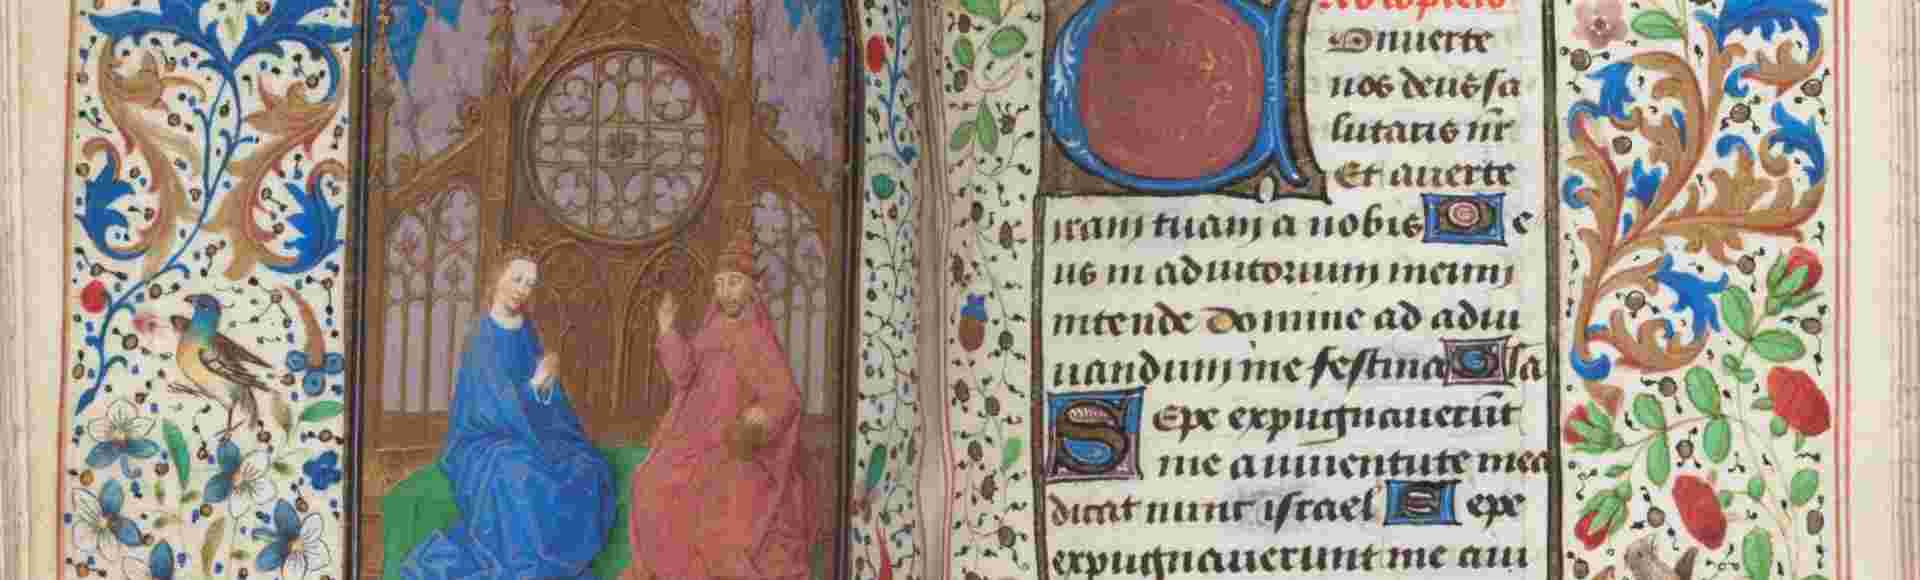 Onuerte
nos deus sa
lutaris nr̄
Et auerte
iram tuam a nobis De
us in adiutorium meum
intende Domine ad adiu
uandum me festina Gla
Sepe expugnauerūt
me a iuuentute mea
dicat nunc israel Sepe
expugnauerunt me a iu